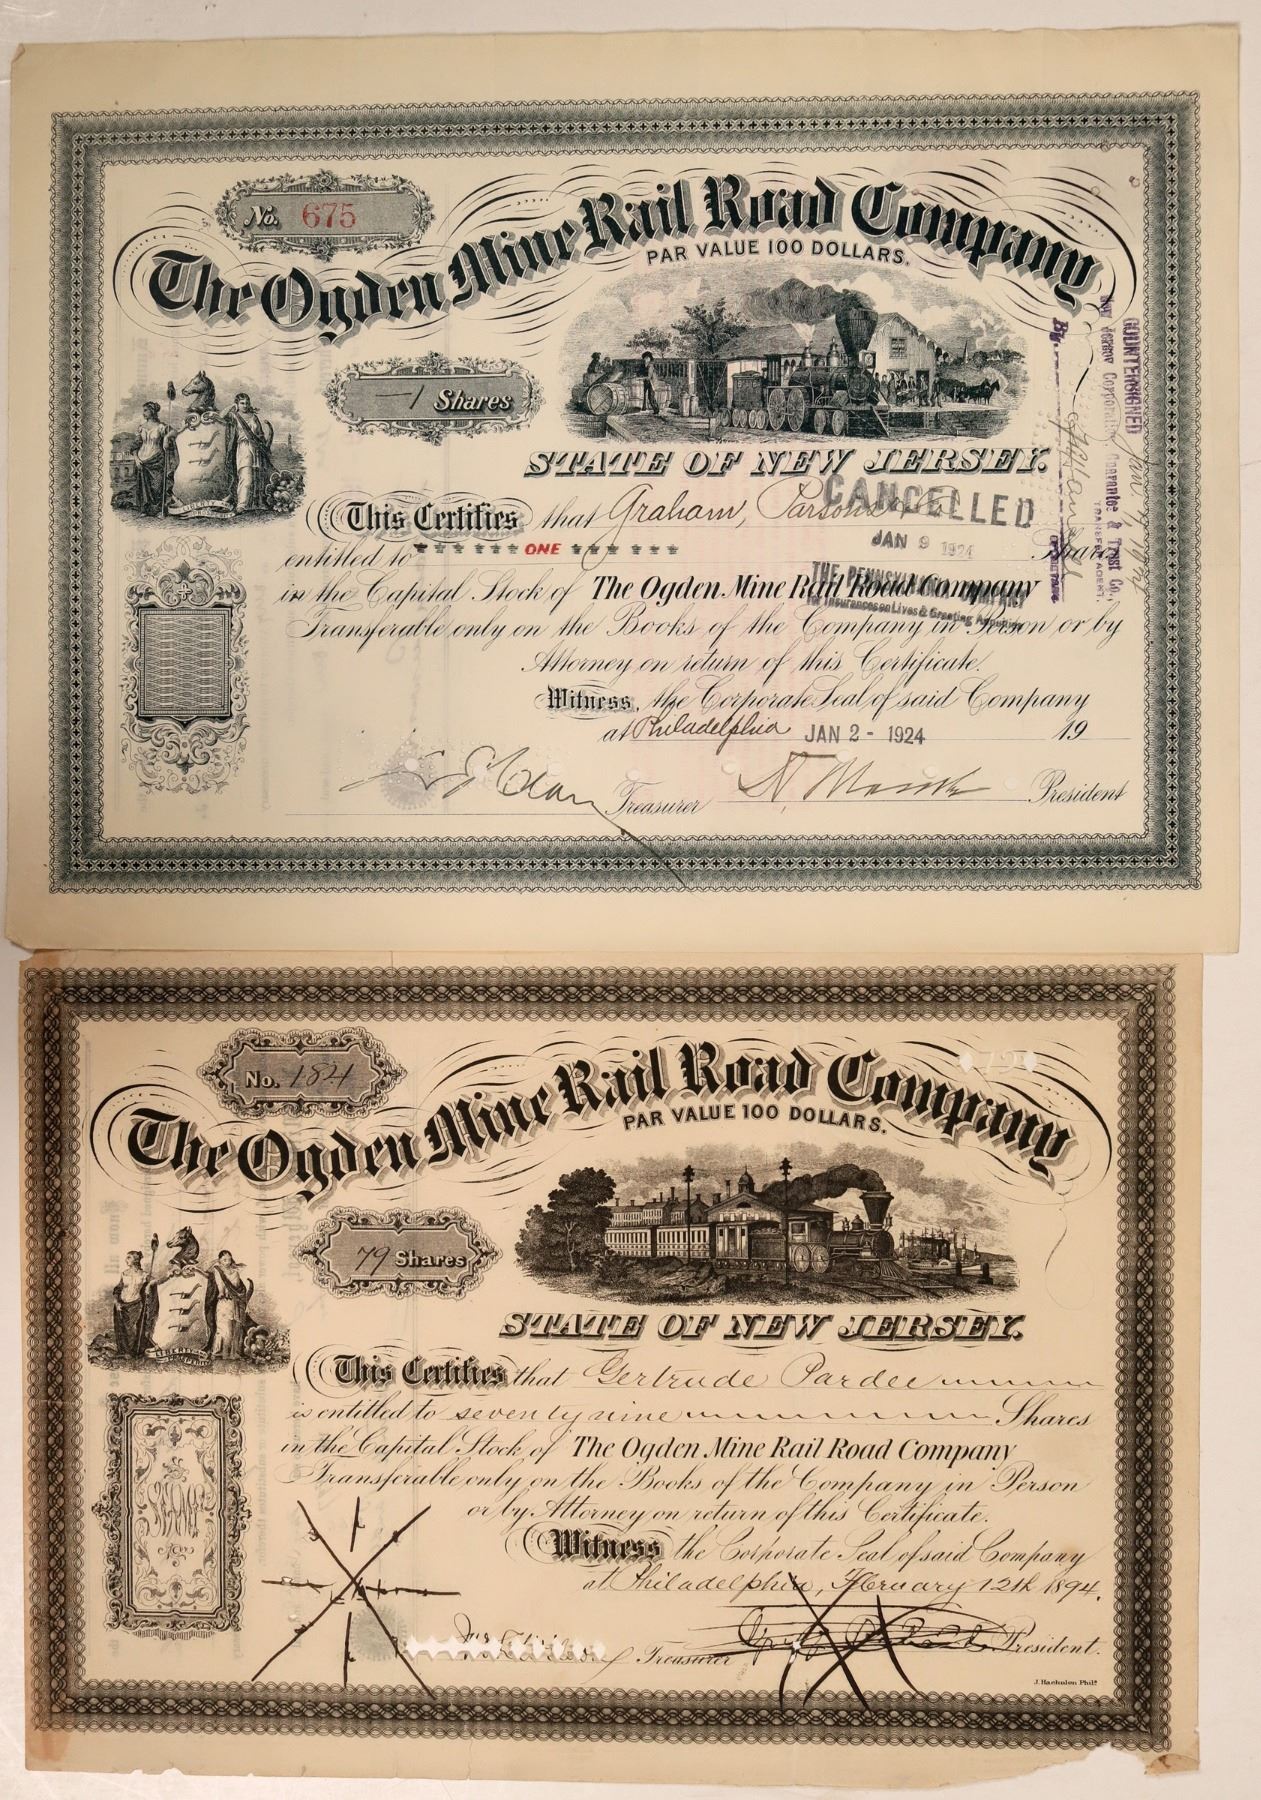 No. 675
The Ogden Mine Rail Road Company
PAR VALUE 100 DOLLARS.
1 Shares
STATE OF NEW JERSEY.
This Certifies that Graham, Parsons
entitled to ONE Shares
in the Capital Stock of The Ogden Mine Rail Road Company
Transferable only on the Books of the Company in Person or by
Attorney on return of this Certificate.
Witness, the Corporate Seal of said Company
at Philadelphia JAN 2 - 1924 19
Treasurer President
CANCELLED
JAN 9 1924
THE PENNSYLVANIA COMPANY
for Insurances on Lives & Granting Annuities
COUNTERSIGNED
New Jersey Corporation Guarantee & Trust Co.,
TRANSFER AGENT.
By
No. 184
The Ogden Mine Rail Road Company
PAR VALUE 100 DOLLARS.
79 Shares
STATE OF NEW JERSEY.
This Certifies that Gertrude Pardee
is entitled to seventy nine Shares
in the Capital Stock of The Ogden Mine Rail Road Company
Transferable only on the Books of the Company in Person
or by Attorney on return of this Certificate.
Witness the Corporate Seal of said Company
at Philadelphia, February 12th 1894.
Treasurer President.